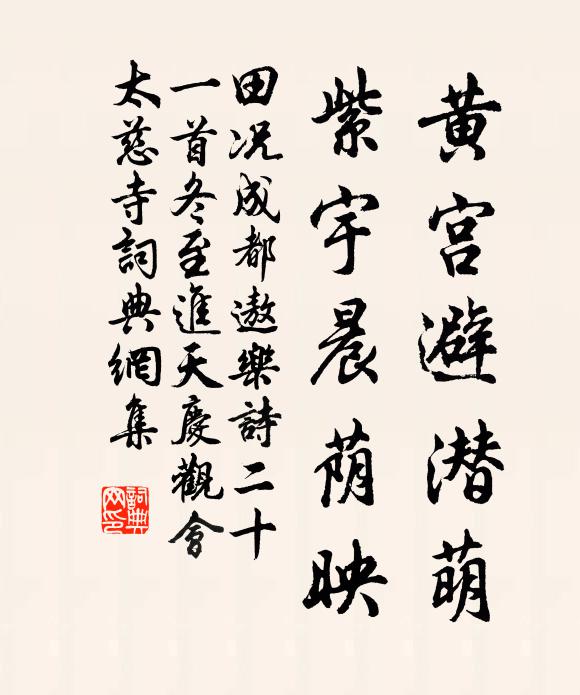 黄宫避潜萌
紫宇晨荫映
田况成都遨樂詩二十
一首冬至進天慶觀會
太慈寺詞典網集
詞典网印